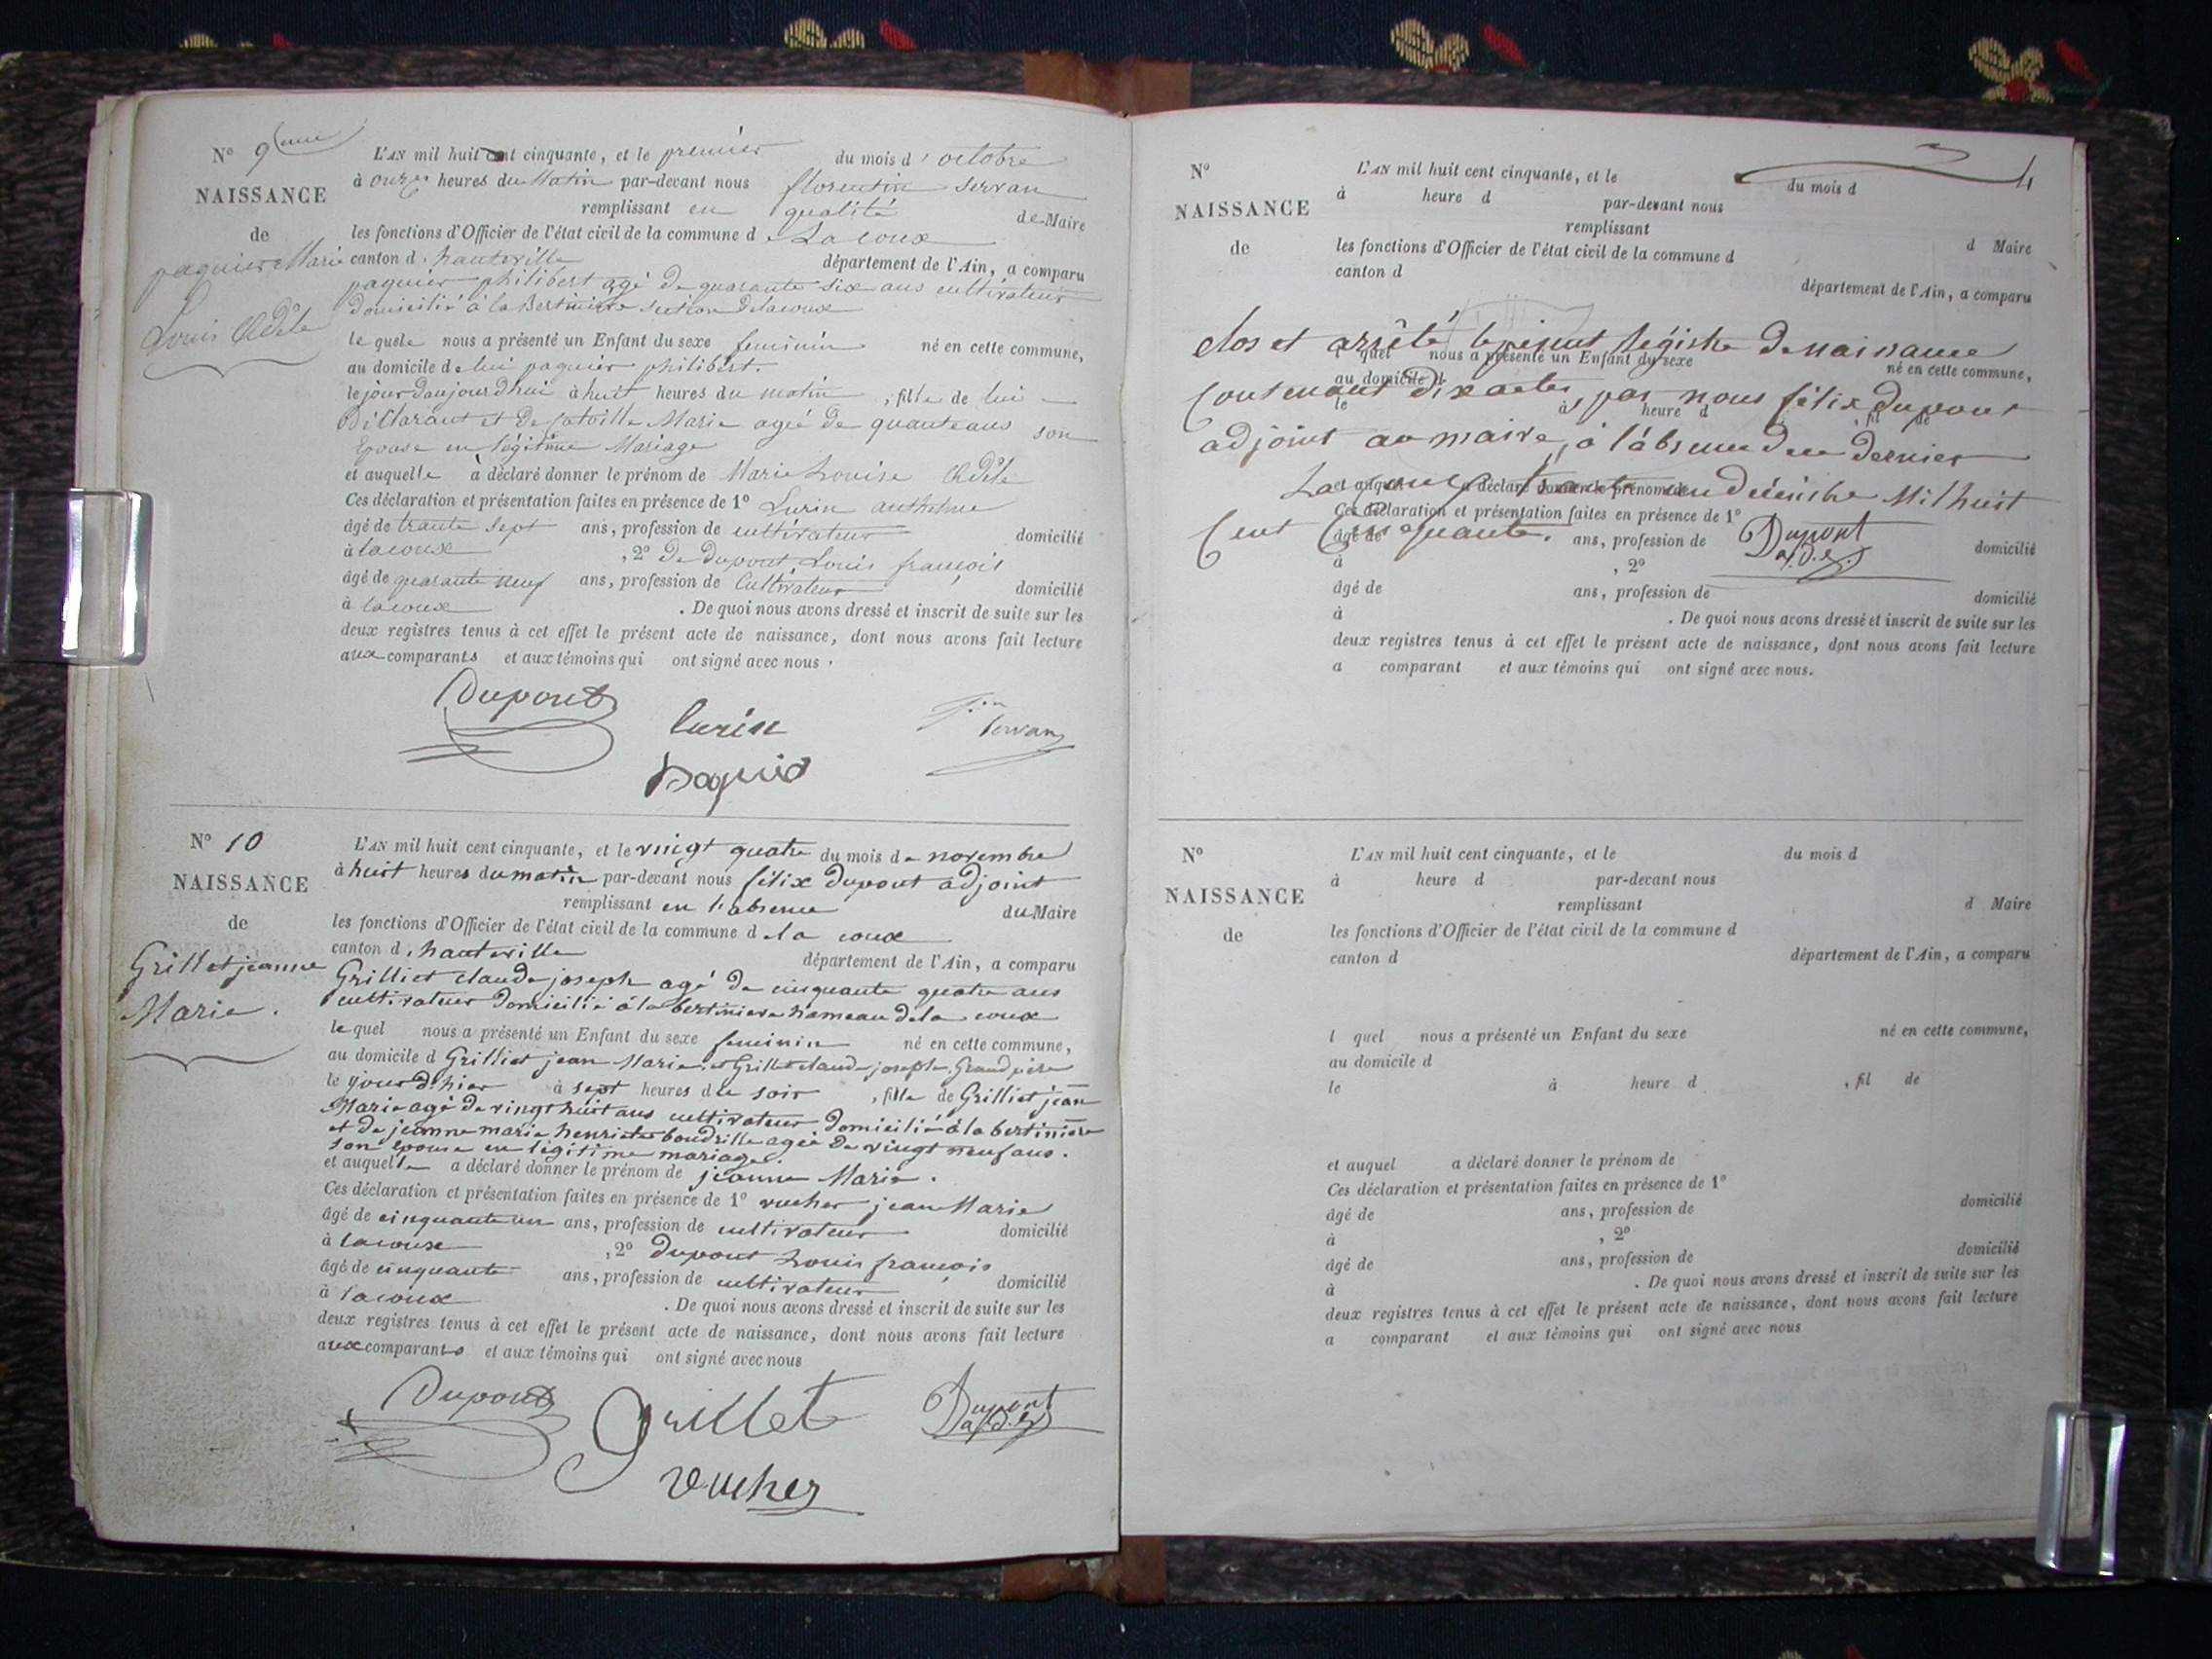 N° 9eme
NAISSANCE
de
paquier Marie
Louis Adele
L'AN mil huit cent cinquante, et le premier du mois d'octobre
à onze heures du Matin par-devant nous florentin servan
remplissant en qualité de Maire
les fonctions d'Officier de l'état civil de la commune de Lacoux
canton d. hauteville département de l'Ain, a comparu
paquier philibert agé de quarante six ans cultivateur
domicilié à la Bertiniere section De lacoux
le quel nous a présenté un Enfant du sexe feminin né en cette commune,
au domicile de lui paquier philibert.
le jour daujourdhui à huit heures du matin, fille de lui
Déclarant et De Marie agée de quante ans son
Epouse en légitime Mariage
et auquelle a déclaré donner le prénom de Marie Louise Adele
Ces déclaration et présentation faites en présence de 1° Lurin anthelme
âgé de trante sept ans, profession de cultivateur domicilié
à lacoux, 2° De Dupont, Louis françois
âgé de quarante neuf ans, profession de Cultivateur domicilié
à lacoux. De quoi nous avons dressé et inscrit de suite sur les
deux registres tenus à cet effet le présent acte de naissance, dont nous avons fait lecture
aux comparants et aux témoins qui ont signé avec nous.
Dupont
Lurin
Servan
paquié
N° 10
NAISSANCE
de
Grilliet jeanne
Marie.
L'AN mil huit cent cinquante, et le vingt quatre du mois de novembre
à huit heures du matin par-devant nous félix dupont adjoint
remplissant en l'absence du Maire
les fonctions d'Officier de l'état civil de la commune de la coux
canton d. hauteville département de l'Ain, a comparu
Grilliet claude joseph agé de cinquante quatre ans
cultivateur domicilié à la bertiniere hameau de la coux
le quel nous a présenté un Enfant du sexe feminin né en cette commune,
au domicile d Grilliet jean Marie. et Grilliet claude joseph. Grand père
le jour d'hier à sept heures du soir, fille de Grilliet jean
Marie agé de vingt huit ans cultivateur domicilié à la bertiniere
et de jeanne marie henriette boudrille agée De vingt neuf ans.
son épouse en légitime mariage.
et auquelle a déclaré donner le prénom de jeanne Marie.
Ces déclaration et présentation faites en présence de 1° vucher jean Marie
âgé de cinquante un ans, profession de cultivateur domicilié
à lacoux, 2° dupont Louis françois
âgé de cinquante ans, profession de cultivateur domicilié
à lacoux. De quoi nous avons dressé et inscrit de suite sur les
deux registres tenus à cet effet le présent acte de naissance, dont nous avons fait lecture
aux comparants et aux témoins qui ont signé avec nous
Dupont
Grillet
Dupont
adj.
vucher
4
N°
NAISSANCE
de
L'AN mil huit cent cinquante, et le du mois d
à heure d par-devant nous
remplissant d Maire
les fonctions d'Officier de l'état civil de la commune d
canton d département de l'Ain, a comparu
clos et arrêté le présent régistre de naissance
l quel nous a présenté un Enfant du sexe né en cette commune,
au domicile d
Contenant dix actes, par nous félix dupont
le à heure d, fil de
adjoint au maire, à l'absence de ce dernier
et auquel a déclaré donner le prénom de
La coux le trante un décembre Mil huit
Ces déclaration et présentation faites en présence de 1°
Cent Cinquante.
Dupont
adj.
âgé de ans, profession de domicilié
à, 2°
âgé de ans, profession de domicilié
à. De quoi nous avons dressé et inscrit de suite sur les
deux registres tenus à cet effet le présent acte de naissance, dont nous avons fait lecture
a comparant et aux témoins qui ont signé avec nous.
N°
NAISSANCE
de
L'AN mil huit cent cinquante, et le du mois d
à heure d par-devant nous
remplissant d Maire
les fonctions d'Officier de l'état civil de la commune d
canton d département de l'Ain, a comparu
l quel nous a présenté un Enfant du sexe né en cette commune,
au domicile d
le à heure d, fil de
et auquel a déclaré donner le prénom de
Ces déclaration et présentation faites en présence de 1°
âgé de ans, profession de domicilié
à, 2°
âgé de ans, profession de domicilié
à. De quoi nous avons dressé et inscrit de suite sur les
deux registres tenus à cet effet le présent acte de naissance, dont nous avons fait lecture
a comparant et aux témoins qui ont signé avec nous